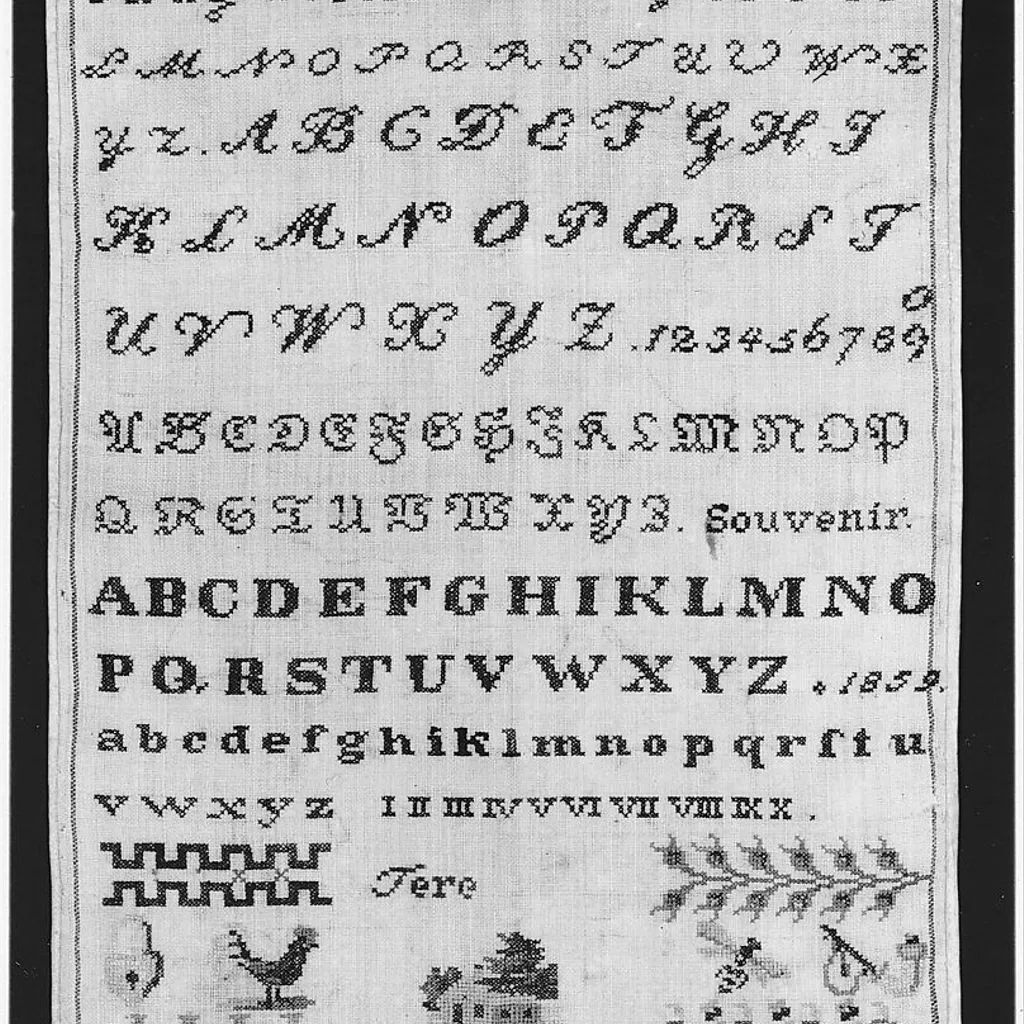 L M N O P Q R S T U V W X
y z. A B C D E F G H I
K L M N O P Q R S T
U V W X Y Z .1234567890
A B C D E F G H I K L M N O P
Q R S T U V W X Y Z. Souvenir.
A B C D E F G H I K L M N O
P Q R S T U V W X Y Z .1859.
a b c d e f g h i k l m n o p q r ſ t u
v w x y z I II III IV V VI VII VIII IX X .
Tere